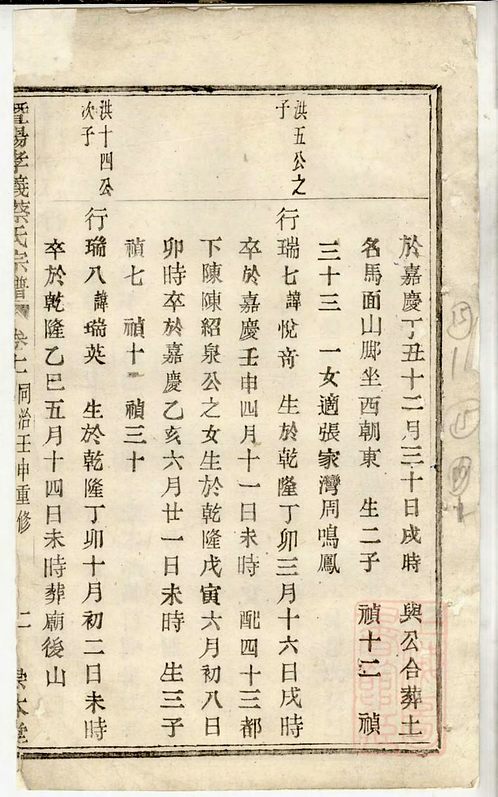 於嘉慶丁丑十二月三十日戌時 與公合葬土
名馬面山脚坐西朝東 生二子 禎十二 禎
三十三 一女適張家灣周鳴鳳
洪五公之
子
行瑞七諱悅奇 生於乾隆丁卯三月十六日戌時
卒於嘉慶壬申四月十一日未時 配四十三都
下陳陳紹泉公之女生於乾隆戊寅六月初八日
卯時卒於嘉慶乙亥六月廿一日未時 生三子
禎七 禎十一 禎三十
洪十四公
次子
行瑞八諱瑞英 生於乾隆丁卯十月初二日未時
卒於乾隆乙巳五月十四日未時葬廟後山
暨陽孝義蔡氏宗譜 卷十一 同治壬申重修 二
15
11
15